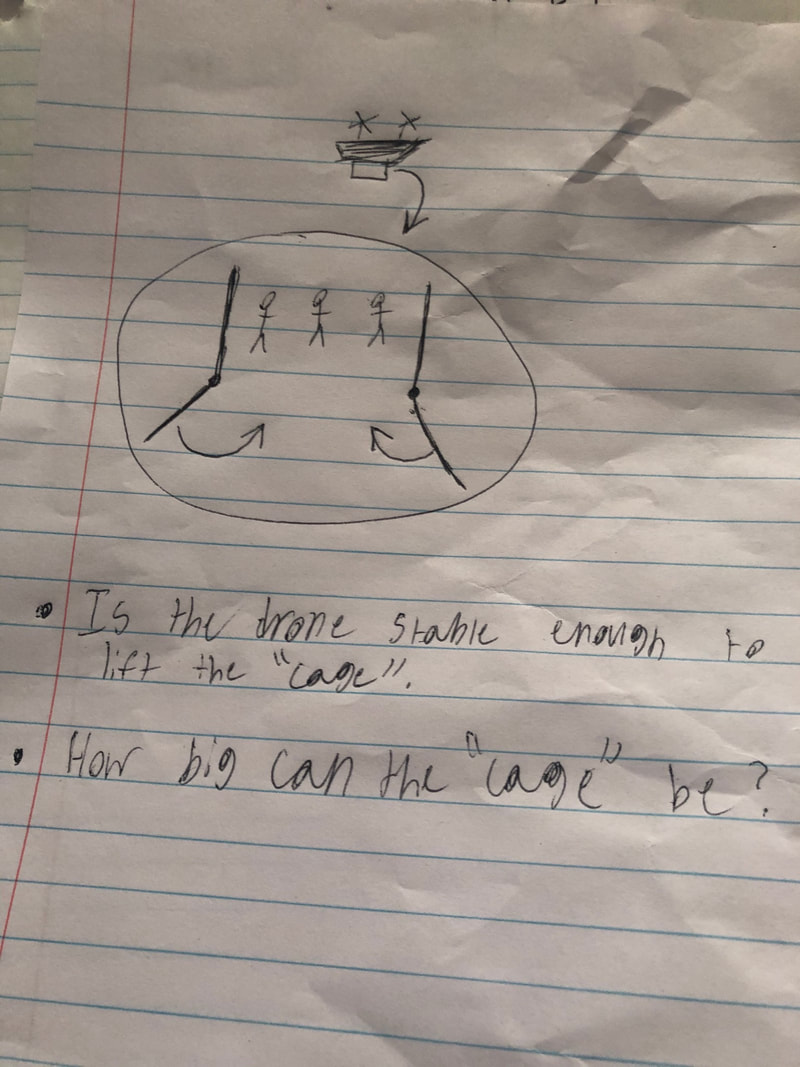 • Is the drone stable enough to
lift the "cage".
• How big can the "cage" be?